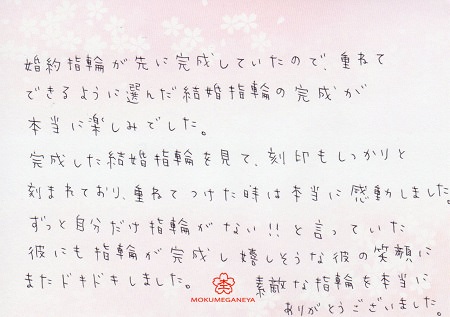 婚約指輪が先に完成していたので、重ねて
できるように選んだ結婚指輪の完成が
本当に楽しみでした。
完成した結婚指輪を見て、刻印もしっかりと
刻まれており、重ねてつけた時は本当に感動しました。
ずっと自分だけ指輪がない!!と言っていた
彼にも指輪が完成し嬉しそうな彼の笑顔に
またドキドキしました。
素敵な指輪を本当に
ありがとうございました。
MOKUMEGANEYA